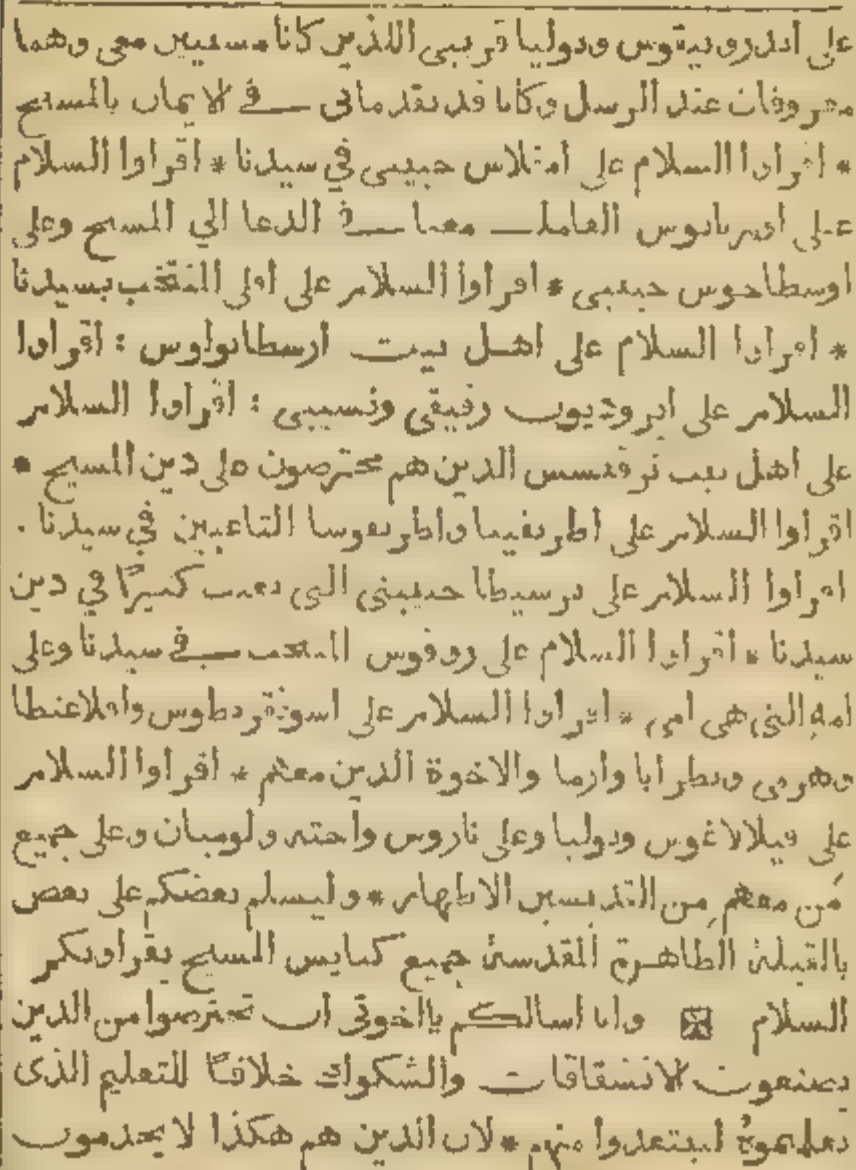 على اندرونيقوس ويوليا قريبى اللذين كانا مسبيين معى وهما
معروفان عند الرسل وكانا قد تقدمانى فى الايمان بالمسيح
* اقراوا السلام على امثلاس حبيبى في سيدنا * اقراوا السلام
على اوربانوس العامل معنا فى الدعا الي المسيح وعلى
اوسطاخوس حبيبى * اقراوا السلام على ابلى المنتخب بسيدنا
* اقراوا السلام على اهل بيت ارسطابولوس : اقراوا
السلام على ايروديون رفيقى ونسيبى : اقراوا السلام
على اهل بيت نرقسس الدين هم محترصون على دين المسيح *
اقراوا السلام على اطريفينا واطريفوسا التاعبين في سيدنا .
اقراوا السلام على برسيطا حبيبتى التى تعبت كثيرًا في دين
سيدنا * اقراوا السلام على روفوس المنتخب فى سيدنا وعلى
امهِ التى هى امى * اقراوا السلام على اسونقريطوس وافلاغنطا
وهرمى وبطرابا وارما والاخوة الدين معهم * اقراوا السلام
على فيلالاغوس ويوليا وعلى ناروس واخته ولومبان وعلى جميع
مَن معهم مِن القديسين الاطهار * وليسلم بعضكم على بعض
بالقبلة الطاهرة المقدسة جميع كنايس المسيح يقراونكم
السلام وانا اسالكم يااخوتى ان تحترصوا من الدين
يصنعون الانشقاقات والشكوك خلافًا للتعليم الذى
تعلمتموهُ لتبتعدوا منهم * لان الدين هم هكذا لا يخدمون